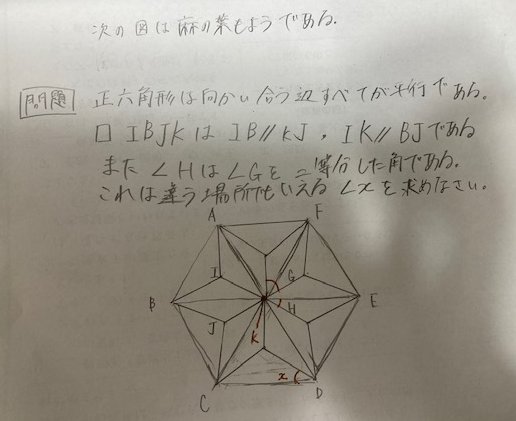 次の図は麻の葉もようである。
問題 正六角形は向かい合う辺すべてが平行である。
□ IBJKは IB//KJ, IK//BJである
また ∠Hは∠Gを二等分した角である。
これは違う場所でもいえる ∠xを求めなさい。
A F
I G
B H E
J K
x
C D